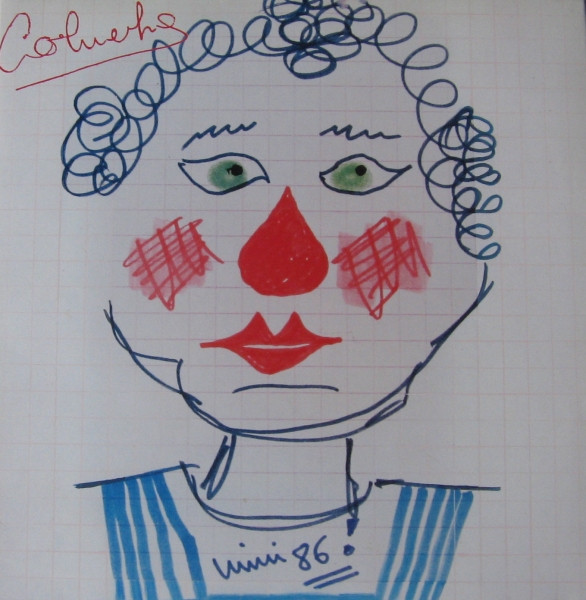 Coluche
mimi 86